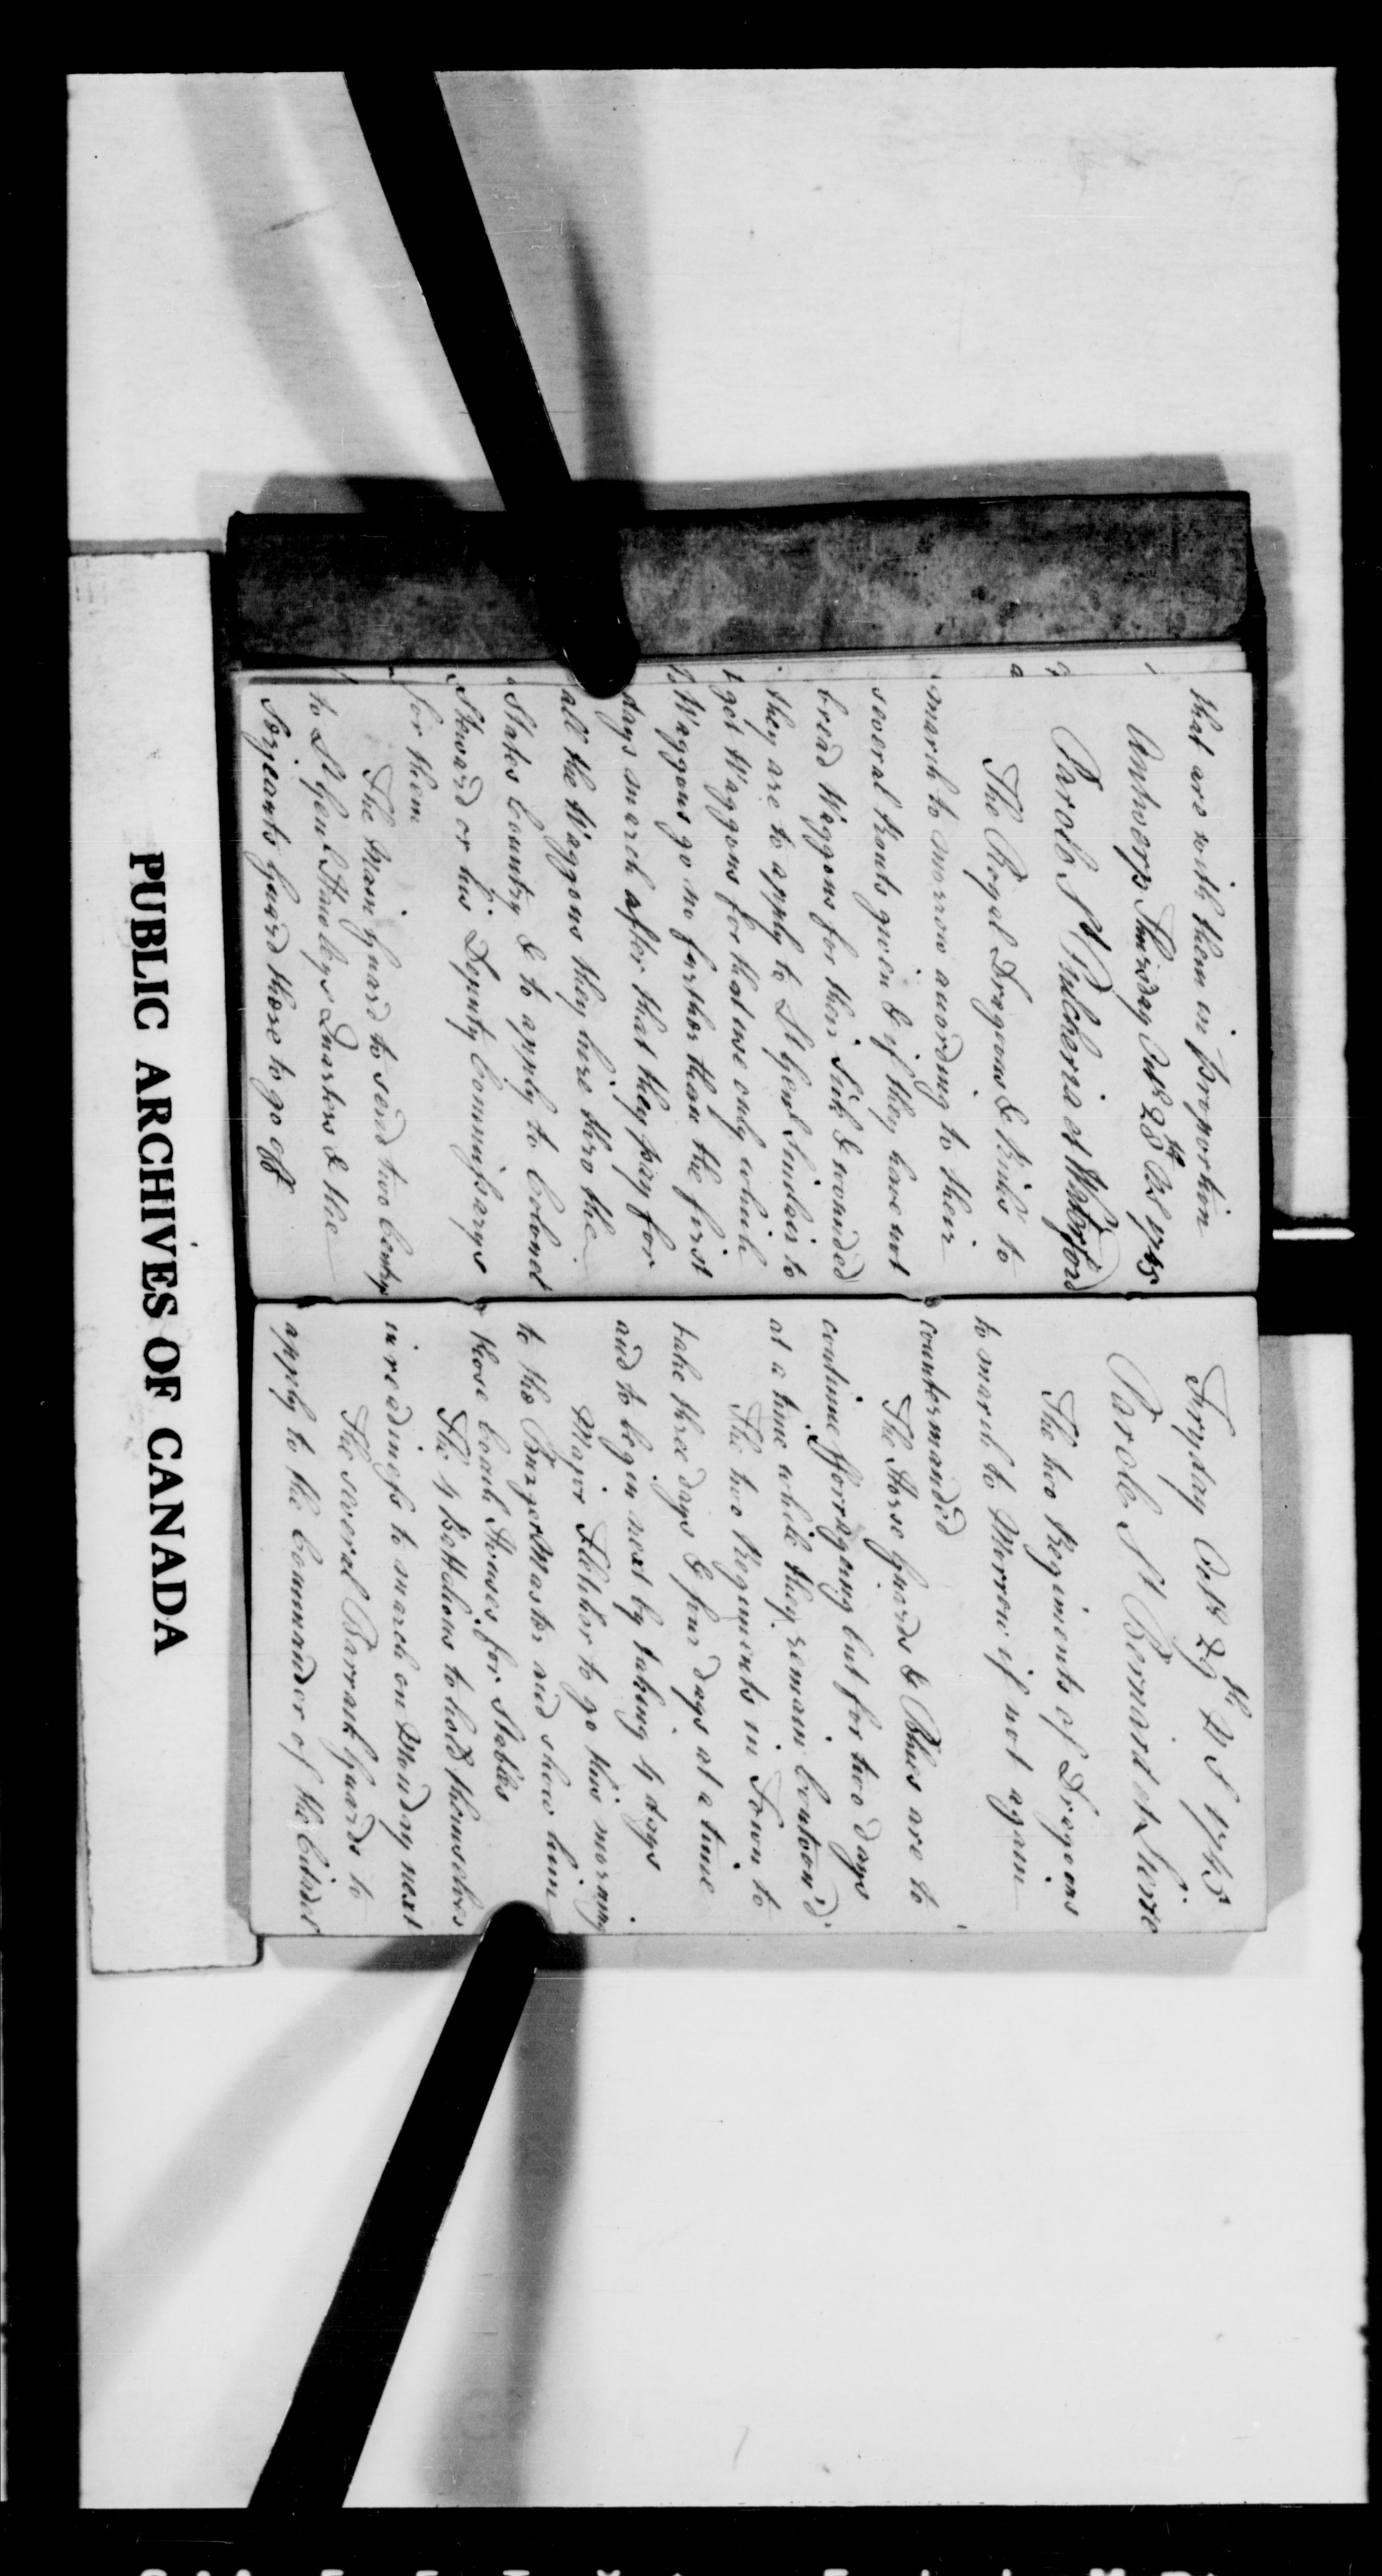 that are with them in proportion
Antwerp Thursday Octr 28th NS 1745
Parole St Pulcheria et Watford
The Royal Dragoons & to
march to morrow according to their
several Routs given & if they have not
bread Waggons for their Sick & wounded
they are to apply to Lt Genl Sinclair to
get Waggons for that use only which
Waggons go no further than the first
days march after that they pay for
all the Waggons they hire thro the
States Country & to apply to Colonel
Steward or his Deputy Commissarys
for them
The Main Guard to send two Centrys
to Lt Genl Quarters & the
Serjeants Guard there to go off
Fryday Octr 29th NS 1745
Parole St Bernard et Lierre
The two Regiments of Dragoons
to march to Morrow if not again
countermanded
The Horse Guards & Blues are to
continue fforraging but for two days
at a time while they remain Cantoon'd
The two Regiments in Town to
take three days & four days at a time
and to begin next by taking 4 days
Major Fletcher to go this morning
to the BurgerMaster and show him
those Coach Houses for Stables
The 4 Battalions to hold themselves
in readiness to march on Monday next
The several Barrack Guards to
apply to the Commander of the Citadel
PUBLIC ARCHIVES OF CANADA